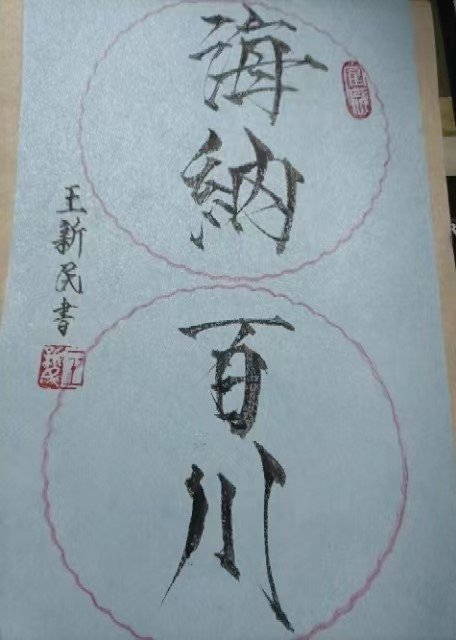 海納百川
王新民書